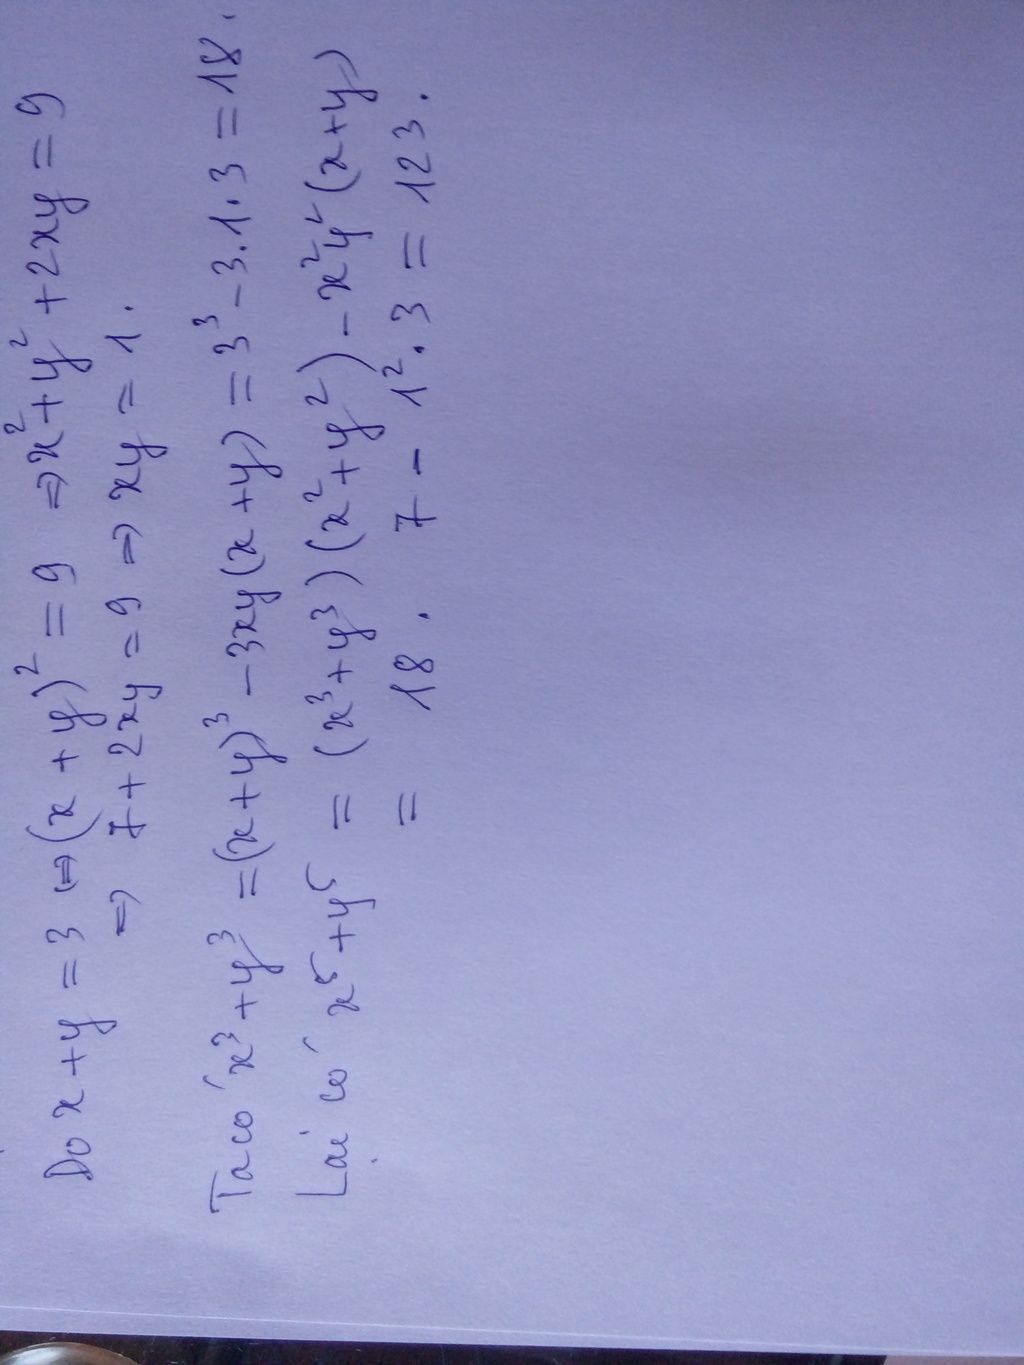 Do x + y = 3 ⇒ (x + y)² = 9 ⇒ x² + y² + 2xy = 9
⇒ 7 + 2xy = 9 ⇒ xy = 1.
Ta có x³ + y³ = (x + y)³ - 3xy(x + y) = 3³ - 3.1.3 = 18.
Lại có x⁵ + y⁵ = (x³ + y³)(x² + y²) - x²y²(x + y)
= 18. 7 - 1².3 = 123.